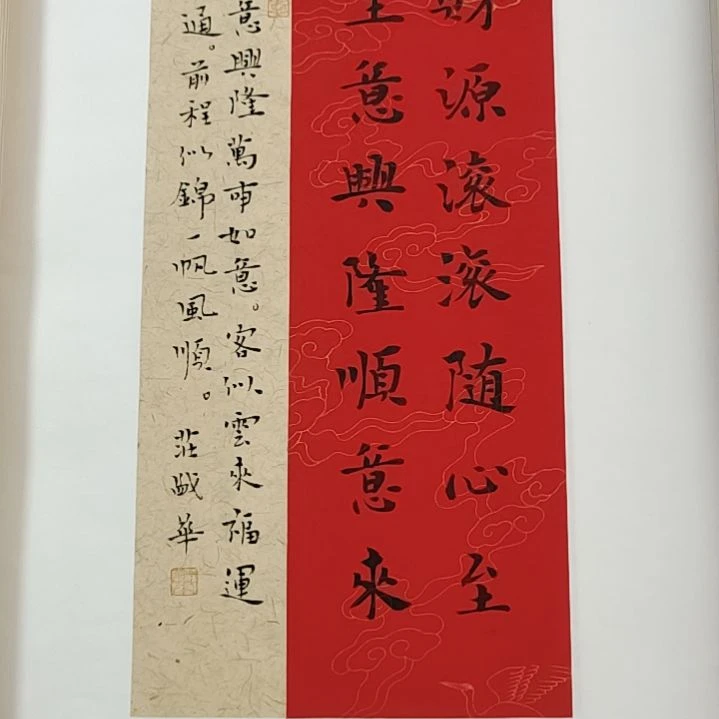 財源滾滾随心至
生意興隆順意來
意興隆萬事如意。客似雲來福運
通。前程似錦一帆風順。莊
華